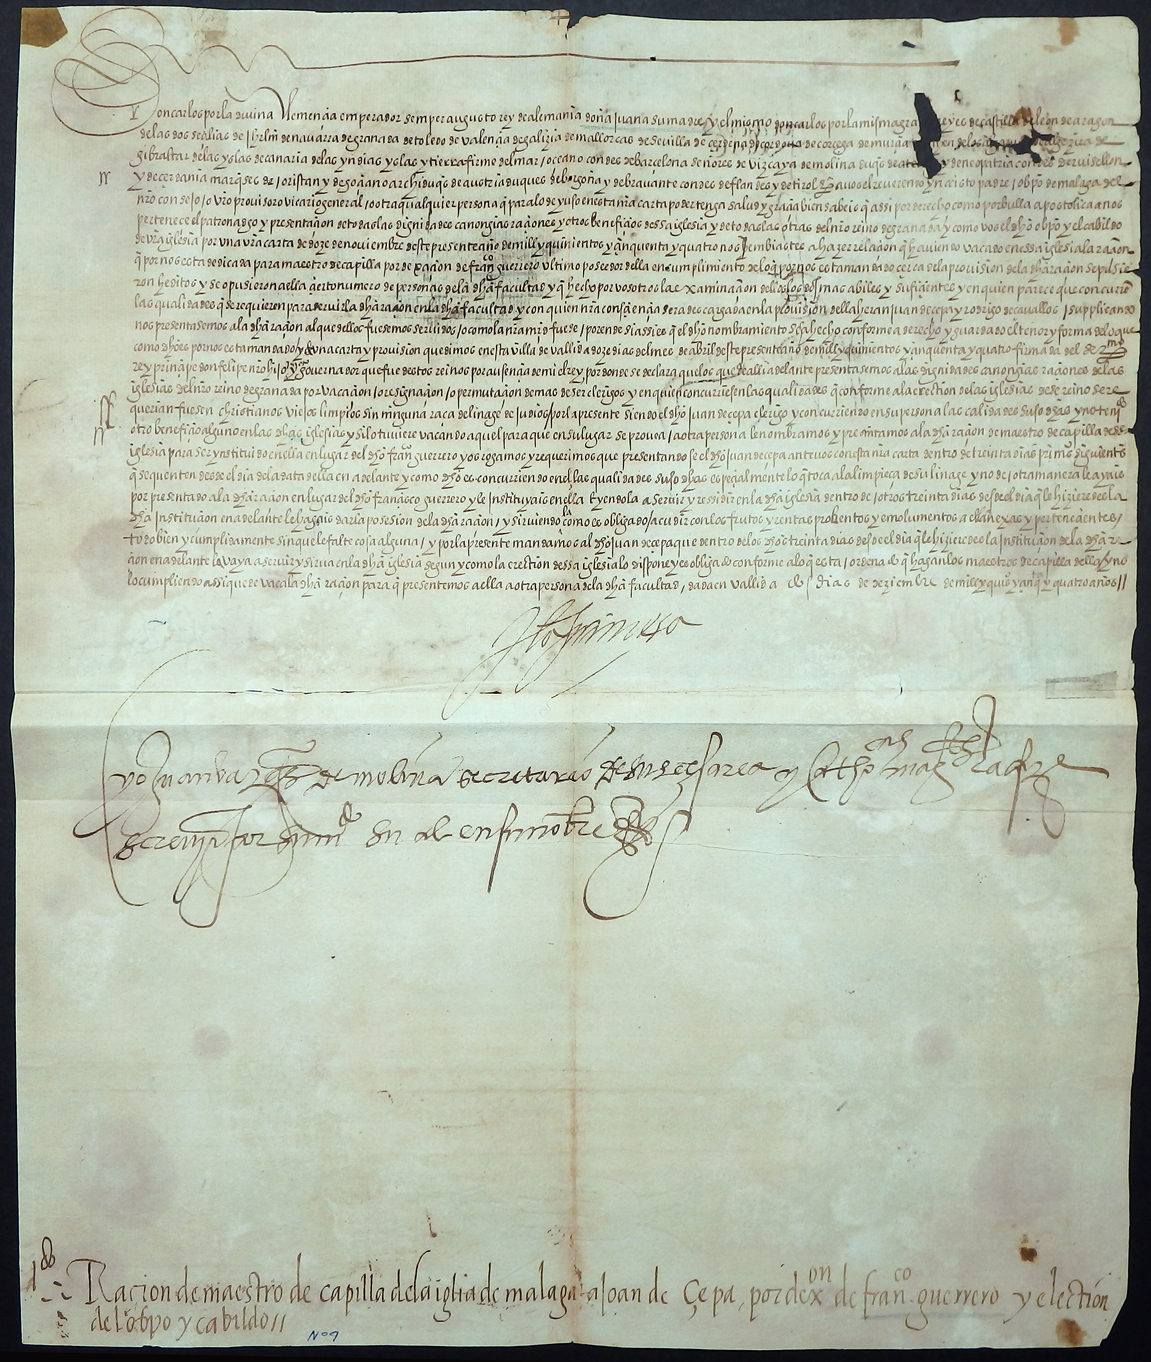 don carlos por la divina clemençia emperador semper augusto rey de alemania doña juana su madre y el mismo don carlos por la misma graçia reyes de castilla de leon de aragon
de las dos seçilias de jherusalem de navarra de granada de toledo de valençia de galizia de mallorcas de sevilla de cerdeña de cordova de corçega de murçia
gibraltar de las yslas de canaria de las yndias yslas y tierra firme del mar oceano condes de barcelona señores de vizcaya de molina duques de y de neopatria condes de ruisellon
y de cerdania marqueses de oristan y de goçiano archiduques de austria duques de borgoña y de bravante condes de flandes y de tirol a vos el reverendo yn cristo padre obpo de malaga del
nro consejo o vro provisor o vicario general o otra qualquier persona que para lo de yuso en esta nra carta poder tenga salud y graçia bien sabeis que assi por derecho como por bulla apostolica a nos
perteneçe el patronadgo y presentaçion de todas las dignidades canongias raçiones y otros benefiçios dessa iglesia y de todas las otras del nro reino de granada y como vos el dho obpo y el cabildo
de vra iglesia por una vra carta de doze de noviembre deste presente año de mill y quinientos y çinquenta y quatro nos embiastes a hazer relaçion que haviendo vacado en essa iglesia la raçion
que por nos esta dedicada para maestro de capilla por dexaçion de franco guerrero ultimo posedor della en cumplimiento de lo que por nos esta mandado cerca de la provision de la dha raçion se pusie
ron heditos y se opusieron a ella çierto numero de personas de la dha facultad y que hecho por vosotros la examinaçion dellos los dos mas abiles y sufiçientes y en quien pareçe que concurren
las qualidades que se requieren para servir la dha raçion en la dha facultad y con quien nra conçiençia sera descargada en la provision della heran juan de cepa y rodrigo de cavallos suplicando
nos presentasemos a la dha raçion al que dellos fuesemos servidos o como la nra mrd fuese por ende si assi es que el dho nombramiento se ha hecho conforme a derecho y guardado el tenor y forma de lo que
como dho es por nos esta mandado y de una carta y provision que dimos en esta villa de vallid a doze dias del mes de abril deste presente año de mill y quinientos y çinquenta y quatro firmada del sermo
rey prinçipe don felipe nro hijo governador que fue destos reinos por ausençia de mi el rey por donde se declara que los que de alli adelante presentasemos a las dignidades canongias raçiones de las
iglesias del nro reino de granada por vacaçion o resignaçion o permutaçion demas de ser clerigos y en quien concurriesen las qualidades que conforme a la erection de las iglesias dese reino se re
querian fuesen christianos viejos limpios sin ninguna raça de linage de judios por la presente siendo el dho juan de cepa clerigo y concurriendo en su persona las calidades suso dhas y no teniendo
otro benefiçio alguno en las dhas iglesias y si lo tuviere vacando aquel para que en su lugar se provea a otra persona le nombramos y presentamos a la dha raçion de maestro de capilla dessa
iglesia para ser ynstituido en ella en lugar del dho franco guerrero y os rogamos y requerimos que presentandose el dho juan de cepa ante vos con esta nra carta dentro de treinta dias primos siguientes
que se quenten desde el dia de la data della en adelante y como dho es concurriendo en el las qualidades suso dhas espeçialmente lo que toca a la limpieça de su linage y no de otra manera le ayais
por presentado a la dha raçion en lugar del dho françisco guerrero y le instituyais en ella e yendola a servir y residir en la dha iglesia dentro de otros treinta dias desde el dia que le hiziere des la
dha instituçion en adelante le hagais dar la posesion de la dha raçion y sirviendola como es obligado acudir con los frutos y rentas proventos y emolumentos a ella anexas y perteneçientes
todo bien y cumplidamente sin que le falte cosa alguna y por la presente mandamos al dho juan de cepa que dentro de los dhos treinta dias desde el dia que le hizierdes la instituçion de la dha r
açion en adelante la vaya a servir y sirva en la dha iglesia segun y como la erection dessa iglesia lo dispone y es obligado conforme a lo que esta ordenado que hagan los maestros de capilla della y no
lo cumpliendo assi quede vaca la dha raçion para que presentemos a ella a otra persona de la dha facultad dada en vallid a dias de deziembre de mill y quios y çinqta y quatro años //
yo juan vazquez de molina secretario de su cesarea y catholicas magdes la fize
screvir por su mdo su al en su nombre
Racion de maestro de capilla de la iglia de malaga a Joan de Çepa, por dexon de franco guerrero y election
del obpo y cabildo //
Nº 9